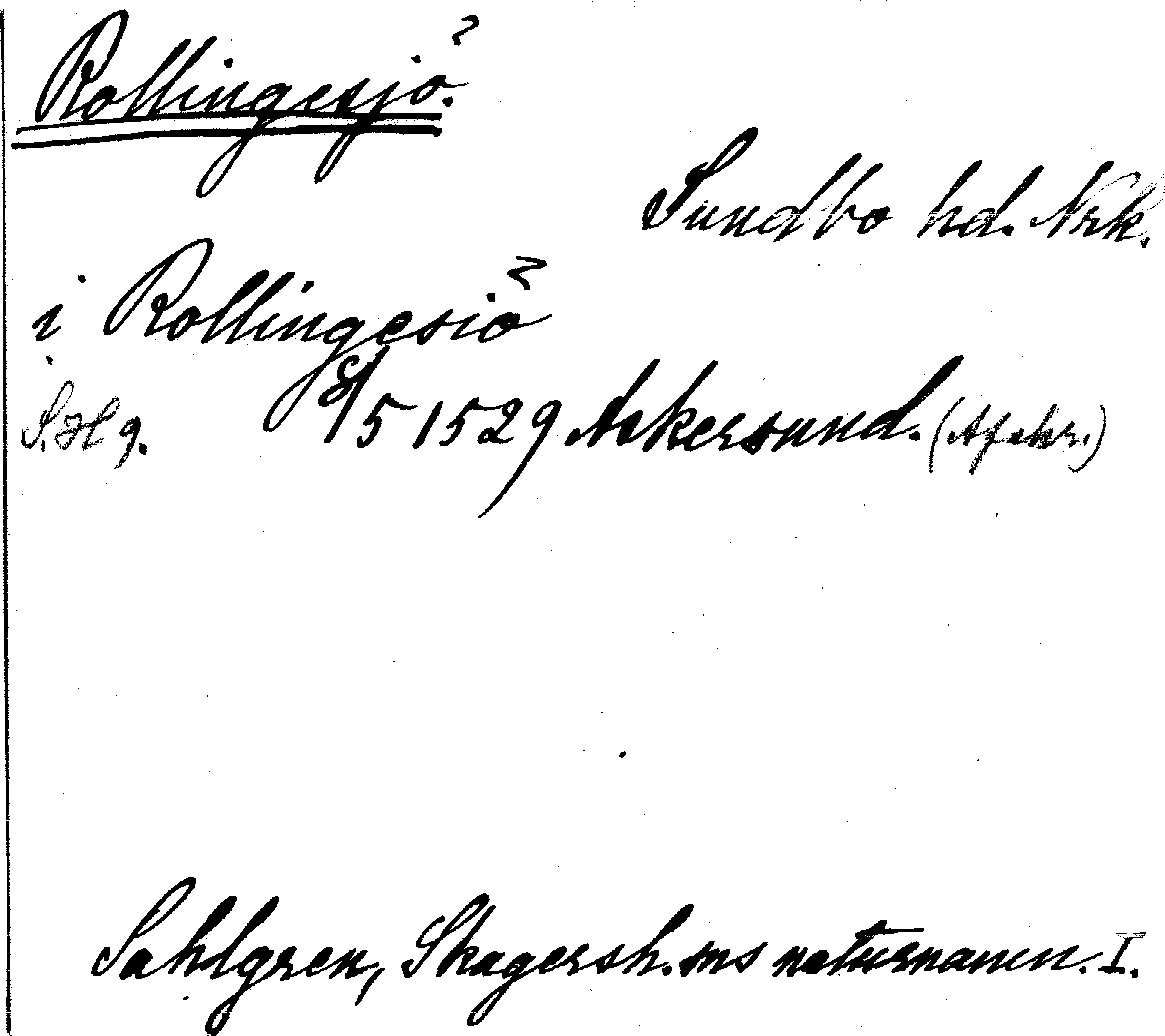 Rollingesjö.
Sundbo hd. Nrk.
i Rollingesiö
S. H g. 8/5 1529 Askersund. (Afskr.)
Sahlgren, Skagersh. sns naturnamn. I.